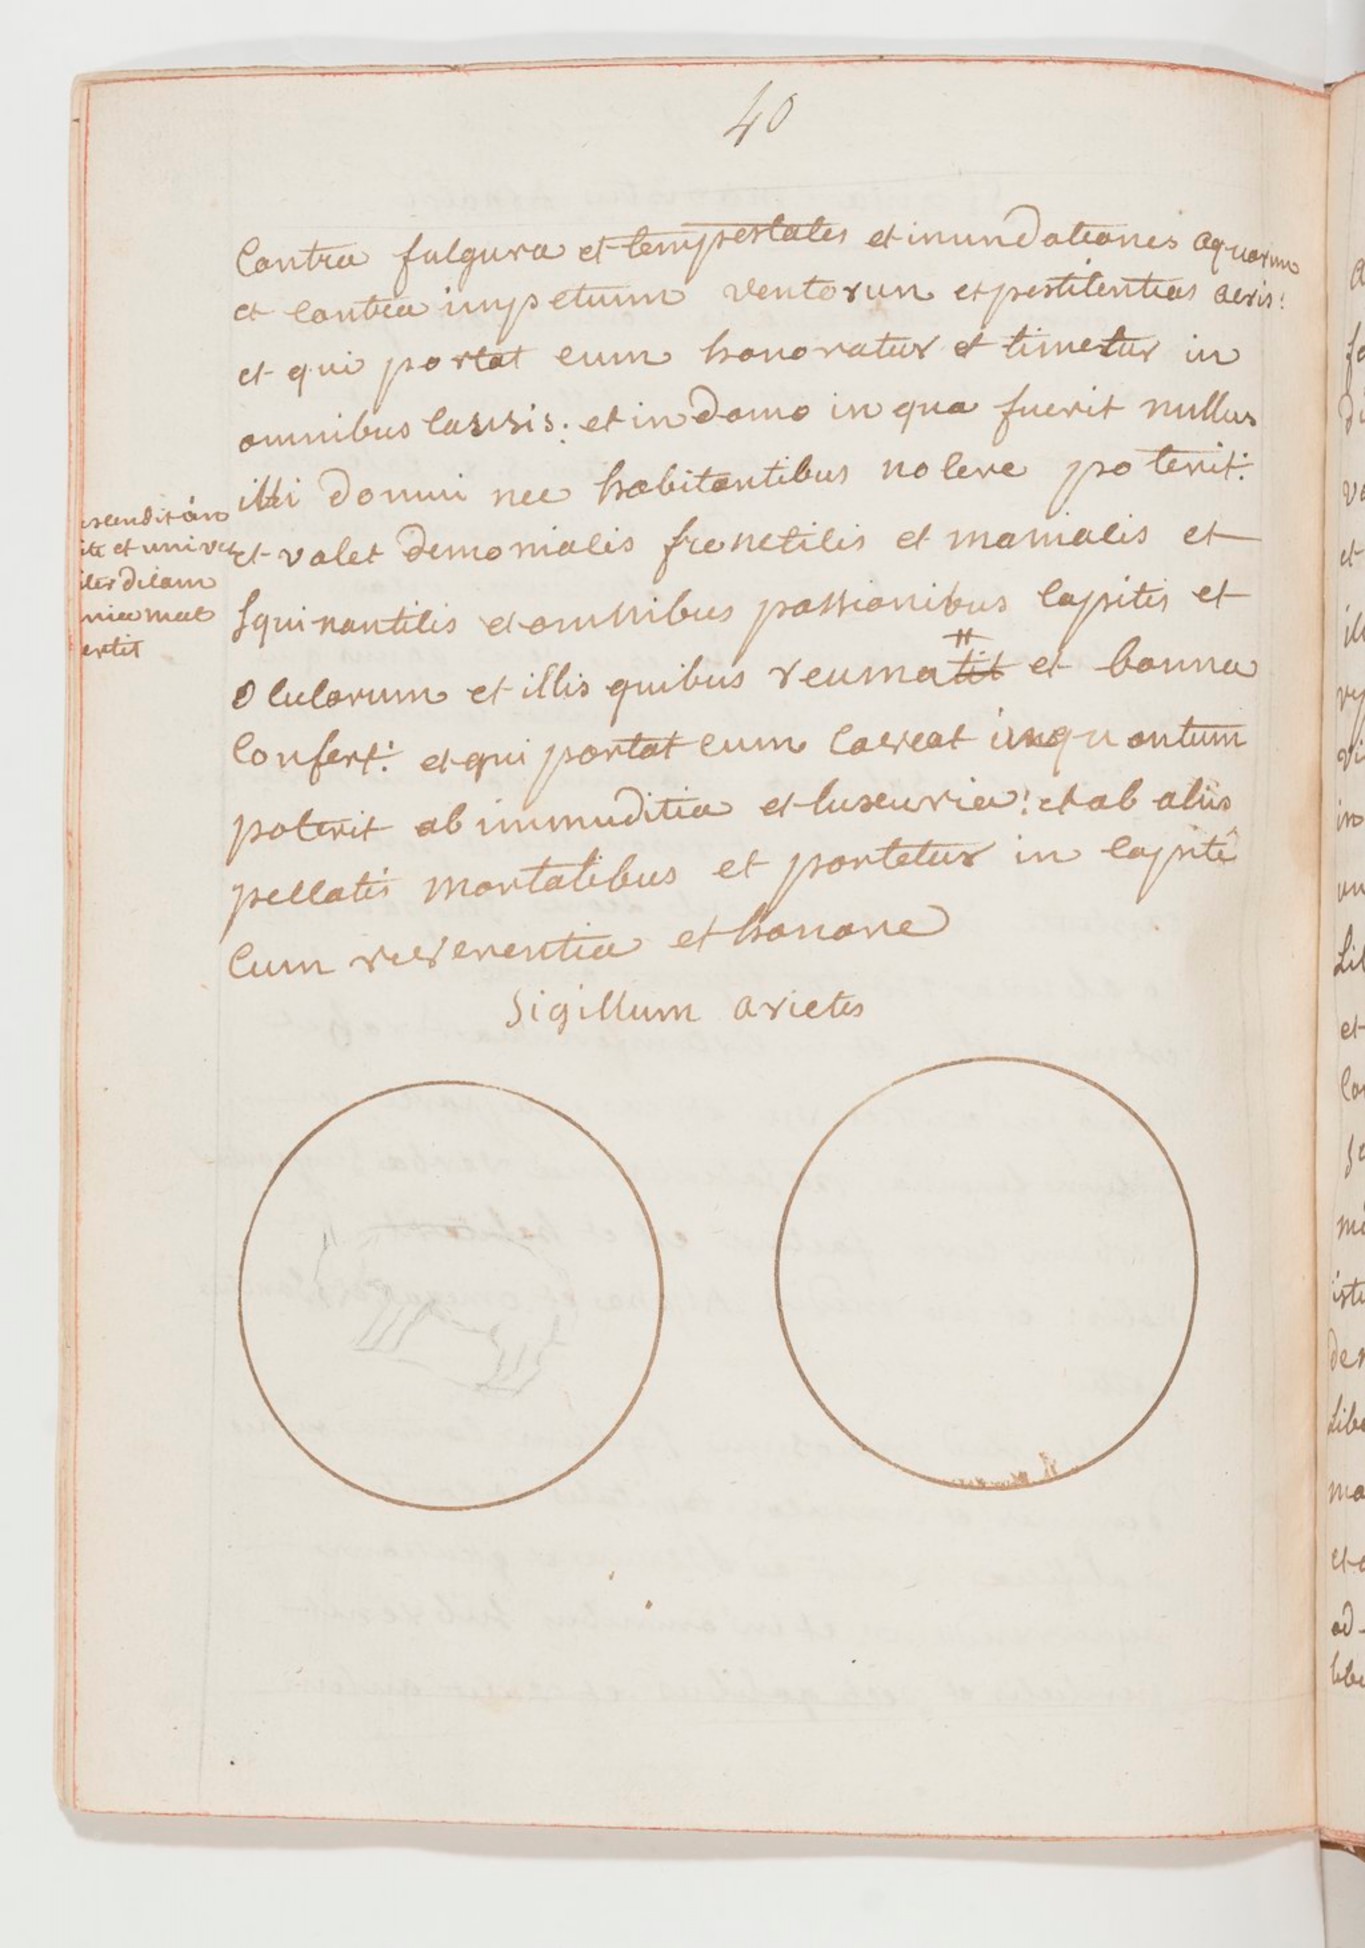 40
Contra fulgura et tempestates et inundationes aquarum
et contra impetum ventorum et pestilentias aeris:
et qui portat eum honoratur et timetur in
omnibus causis: et in domo in qua fuerit nullus
illi domui nec habitantibus nocere poterit:
et valet demoniacis freneticis et maniacis et
squinanticis et omnibus passionibus capitis et
oculorum et illis quibus reumatit et bonna
confert: et qui portat eum caveat inquantum
poterit ab immuditia et luxuria: et ab aliis
peccatis mortalibus et portetur in capite
Cum reverentia et honore
Sigillum arietis
scendit an
ite et univer
iter dicam
nia mat
ertit